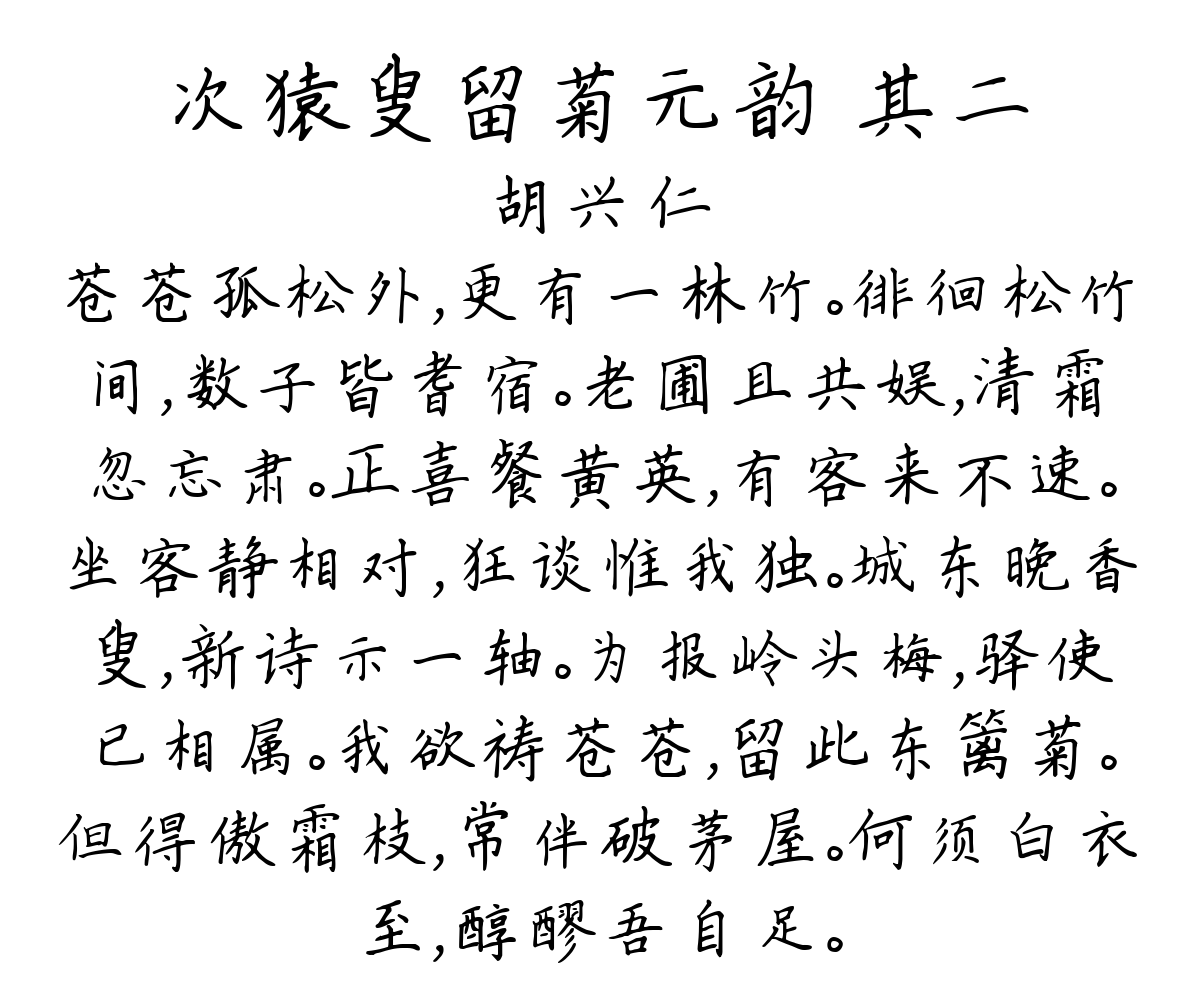 次猿叟留菊元韵 其二
胡兴仁
苍苍孤松外,更有一林竹。徘徊松竹
间,数子皆耆宿。老圃且共娱,清霜
忽忘肃。正喜餐黄英,有客来不速。
坐客静相对,狂谈惟我独。城东晚香
叟,新诗示一轴。为报岭头梅,驿使
已相属。我欲祷苍苍,留此东篱菊。
但得傲霜枝,常伴破茅屋。何须白衣
至,醇醪吾自足。